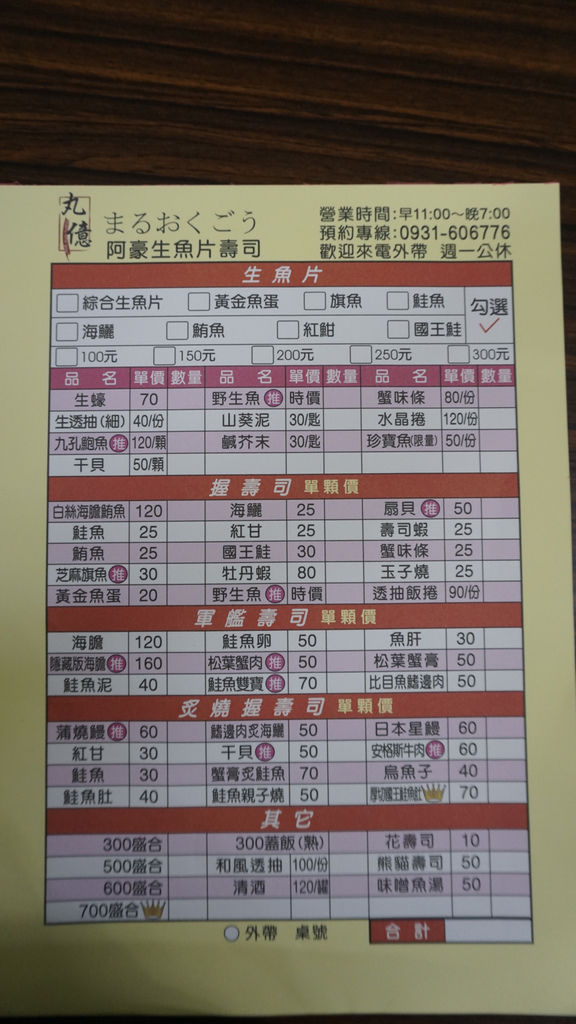 丸億
まるおくごう
阿豪生魚片壽司
營業時間:早11:00～晚7:00
預約專線:0931-606776
歡迎來電外帶 週一公休
生魚片
綜合生魚片 黃金魚蛋 旗魚 鮭魚 勾選
海鱺 鮪魚 紅魽 國王鮭
100元 150元 200元 250元 300元
品名 單價 數量 品名 單價 數量 品名 單價 數量
生蠔 70 野生魚 推 時價 蟹味條 80/份
生透抽(細) 40/份 山葵泥 30/匙 水晶捲 120/份
九孔鮑魚 推 120/顆 鹹芥末 30/匙 珍寶魚(限量) 50/份
干貝 50/顆
握壽司 單顆價
白絲海膽鮪魚 120 海鱺 25 扇貝 推 50
鮭魚 25 紅甘 25 壽司蝦 25
鮪魚 25 國王鮭 30 蟹味條 25
芝麻旗魚 推 30 牡丹蝦 80 玉子燒 25
黃金魚蛋 20 野生魚 推 時價 透抽飯捲 90/份
軍艦壽司 單顆價
海膽 120 鮭魚卵 50 魚肝 30
隱藏版海膽 推 160 松葉蟹肉 推 50 松葉蟹膏 50
鮭魚泥 40 鮭魚雙寶 推 70 比目魚鰭邊肉 50
炙燒握壽司 單顆價
蒲燒鰻 推 60 鰭邊肉炙海鱺 50 日本星鰻 60
紅甘 30 干貝 推 50 安格斯牛肉 推 60
鮭魚 30 蟹膏炙鮭魚 70 烏魚子 40
鮭魚肚 40 鮭魚親子燒 50 厚切國王鮭魚肚 70
其它
300盛合 300蓋飯(熟) 花壽司 10
500盛合 和風透抽 100/份 熊貓壽司 50
600盛合 清酒 120/罐 味噌魚湯 50
700盛合
外帶 桌號 合計